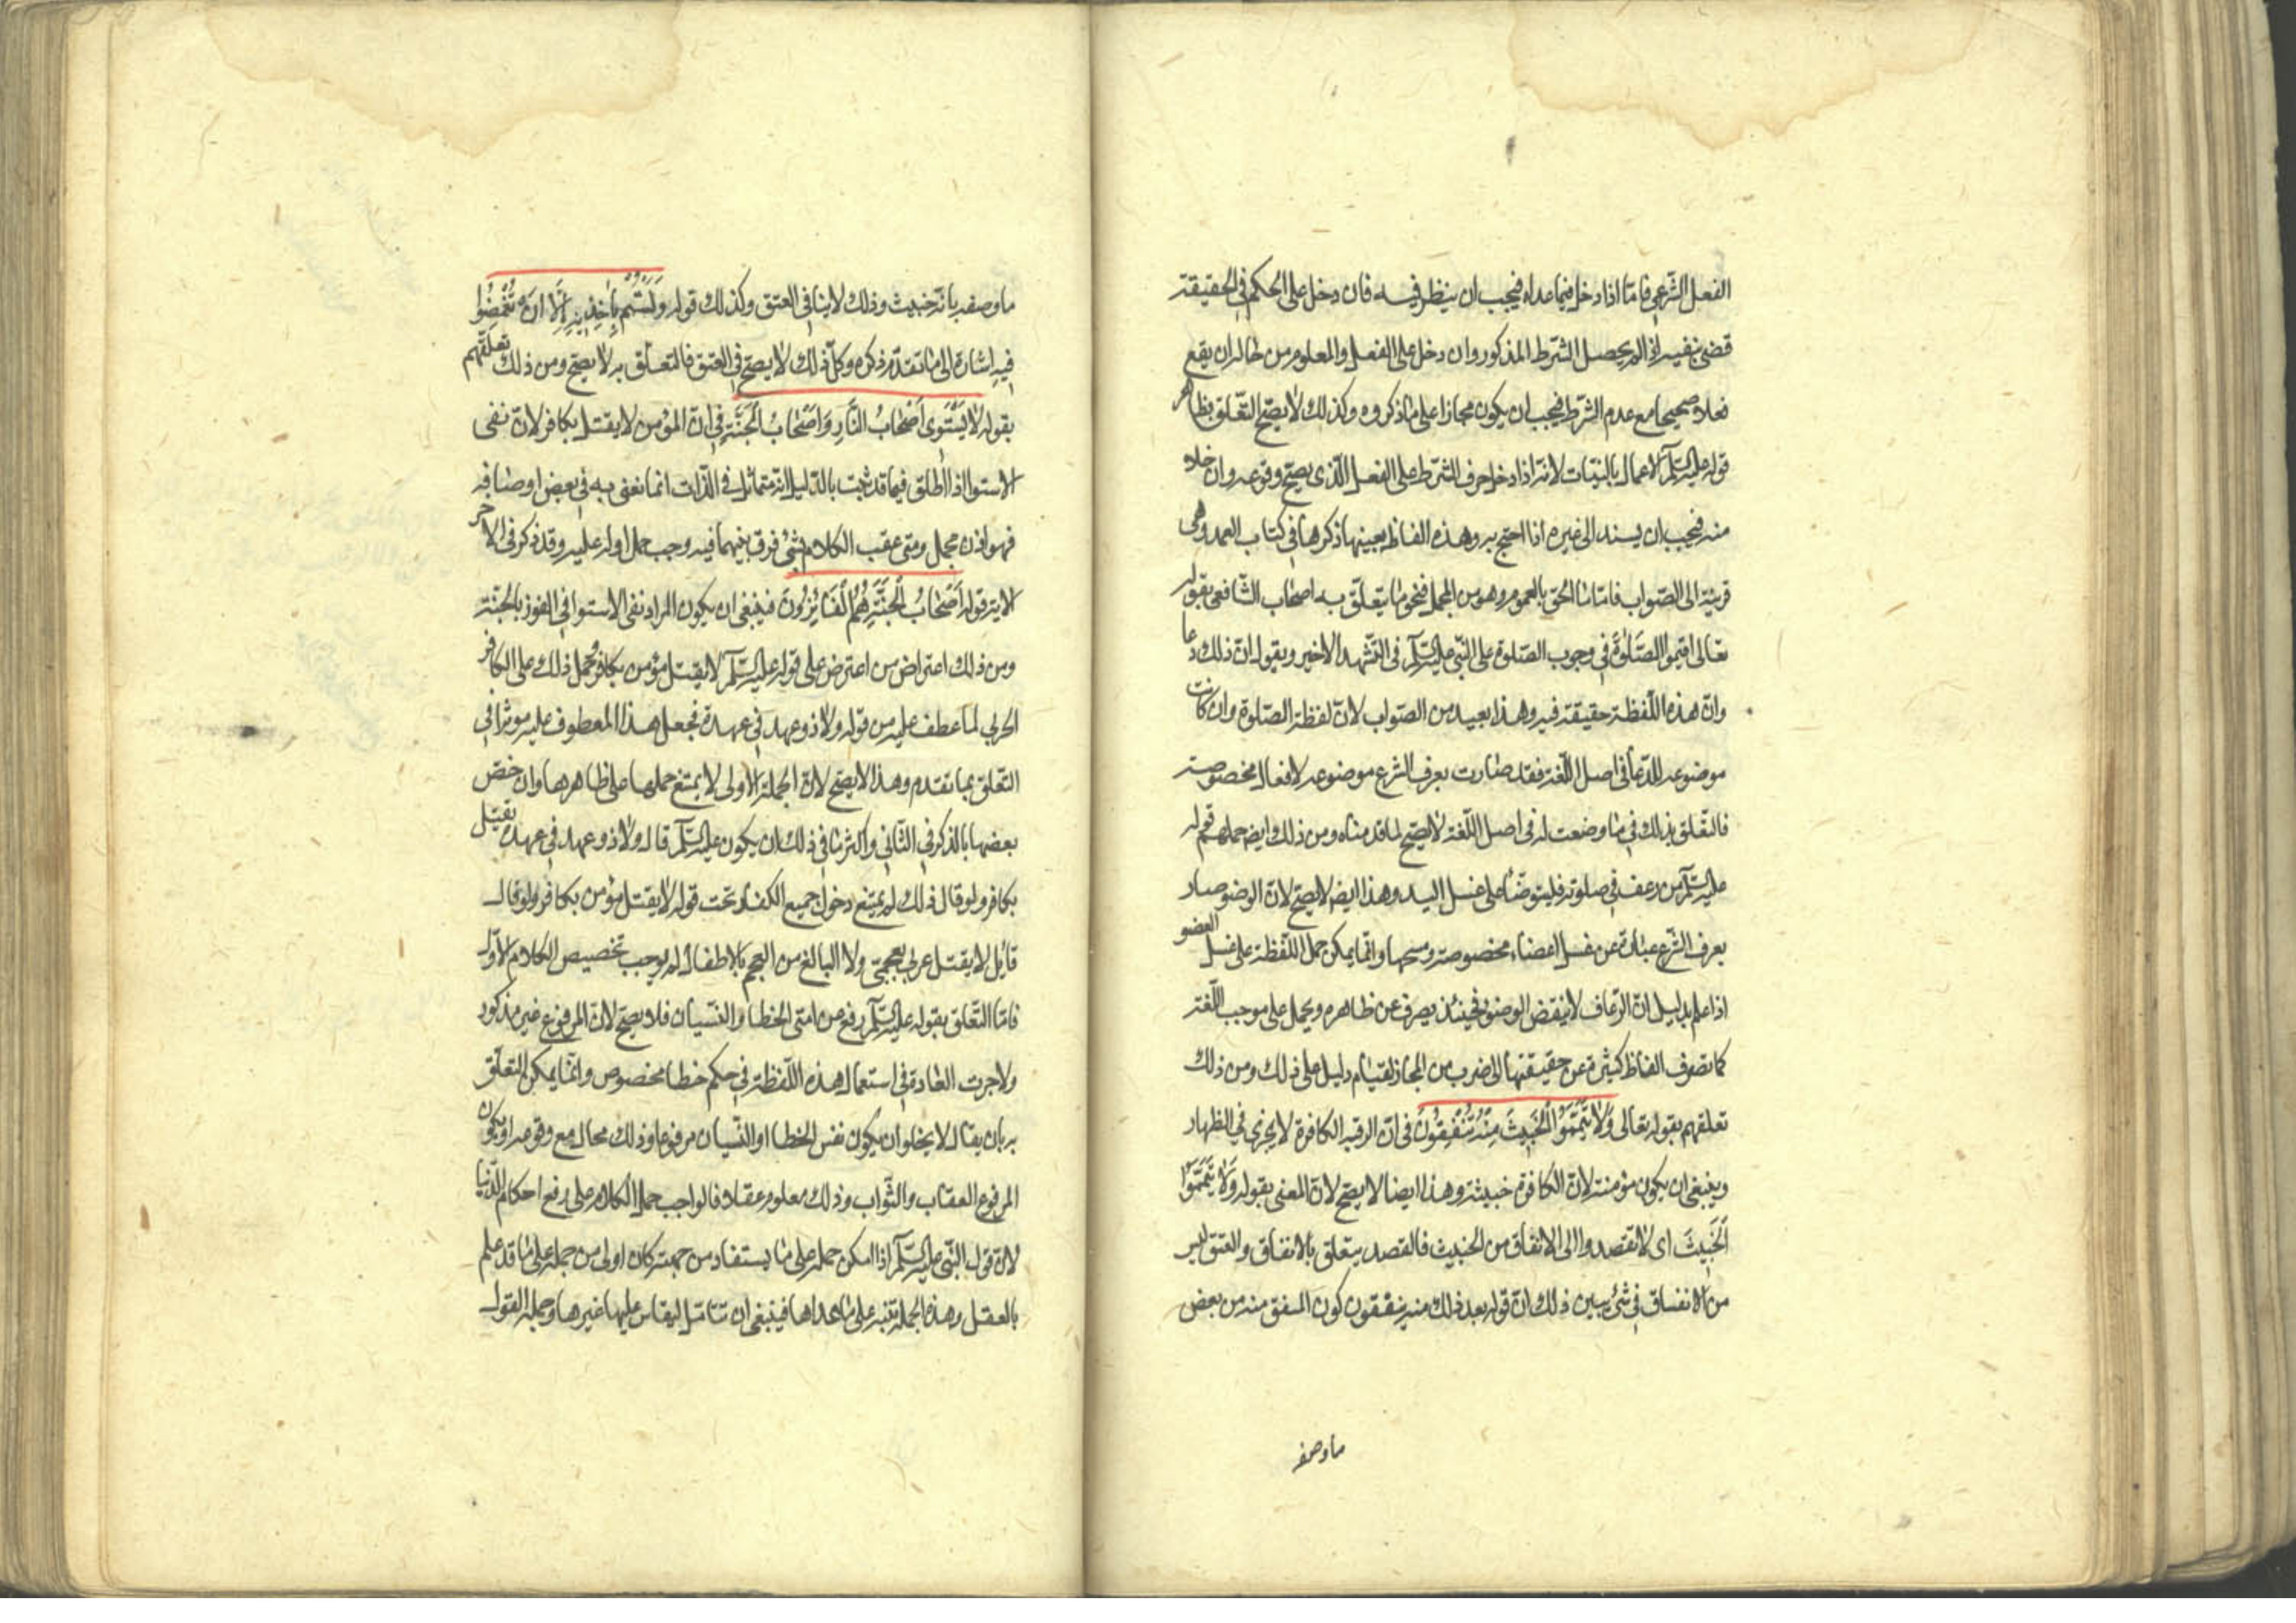 الفعل الشرعي فامّا اذا دخل فيما عداه فيجب ان ينظر فيه فان دخل على الحكم في الحقيقة
قضى بنفيه اذا لم يحصل الشرط المذكور وان دخل على الفعل والمعلوم من حاله ان يقع
فعلا صحيحا مع عدم الشرط فيجب ان يكون مجازا على ما ذكروه وكذلك لا يصحّ التعلّق بظاهر
قوله عليه السلم الاعمال بالنيّات لانه اذا دخل حرف الشرط على الفعل الّذى يصحّ وقوعه وان خلا
منه فيجب ان يسند الى غيره اذا احتج به وهذه الفاظه بعينها ذكرها في كتاب العمد وهى
قريبة الى الصّواب فامّا ما الحق بالعموم وهو من المجمل فنحو ما يتعلّق به اصحاب الشافعى بقوله
تعالى اقيموا الصَّلوةَ في وجوب الصّلوة على النّبى عليه السلم فى التّشهد الاخير ويقول انّ ذلك دعا
وانّ هذه اللّفظة حقيقة فيه وهذا بعيد من الصّواب لانّ لفظة الصّلوة وان كانت
موضوعه للدّعا فى اصل اللّغة فقد صارت بعرف الشرع موضوعه لافعال مخصوصة
فالتعّلق بذلك في ما وضعت له فى اصل اللّغة لا يصحّ لما قدمناه ومن ذلك ايضا حملهم قوله
عليه السلم من رعف في صلوته فليتوضّأ على غسل اليد وهذا ايضا لا يصحّ لانّ الوضو صار
بعرف الشّرع عبارة عن غسل اعضاء مخصوصة ومسحها وانّما يمكن حمل اللّفظة على غسل العضو
اذا علم بدليل انّ الرّعاف لا ينقض الوضو فحينئذ يصرف عن ظاهره ويحمل على موجب اللّغة
كما تصرف الفاظ كثيرة عن حقيقتها الى ضرب من المجاز لقيام دليل على ذلك ومن ذلك
تعلقهم بقوله تعالى وَلا تَيَمَّمَوُا الْخَبيثَ مِنْهُ تُنْفِقُونَ فى انّ الرقبه الكافرة لا يجزى في الظهار
وينبغى ان يكون مؤمنة لانّ الكافرة خبيثة وهذا ايضا لا يصحّ لانّ المعنى بقوله وَلا تَيَمَّمَوُا
الْخَبيثَ اى لا تقصدوا الى الانفاق من الخبيث فالقصد يتعلق بالانفاق والعتق ليس
من الانفاق في شئ يبين ذلك انّ قوله بعد ذلك منه ينفقون كون المنفق منه من بعض
ما وصفه
ما وصفه بانّه خبيث وذلك لا ينافي العتق وكذلك قوله وَلَسْتُمْ بِآخِذيهِ اِلّا اَنْ تُغْمِضُوا
فيهِ اشارة الى ما تقدّم ذكره وكلّ ذلك لا يصحّ في العتق فالتعلّق به لا يصحّ ومن ذلك تعلّقهم
بقوله لا يَسْتَوى اَصْحابُ النّارِ وَاَصْحابُ الْجَنَّةِ في انّ المؤمن لا يقتل بكافر لانّ نفى
الاستوا اذا اطلق فيما قد ثبت بالدّليل انه متماثل فى الذّات انما نعنى به في بعض اوصافه
فهو اذن مجمل ومتى عقب الكلام بشئ فرق بينهما فيه وجب حمل اوله عليه وقد ذكر فى الاخر
الاية قوله اَصْحابُ الْجَنَّةِ هُمُ الْفائِزُونَ فينبغى ان يكون المراد نفى الاستوا في الفوز بالجنّة
ومن ذلك اعتراض من اعترض على قوله عليه السلم لا يقتل مؤمن بكافر فحمل ذلك على الكافر
الحربي لما عطف عليه من قوله ولا ذو عهد في عهده فجعل هذا المعطوف عليه موثرا في
التعّلق بما تقدم وهذا لا يصحّ لانّ الجملة الاولى لا يمتنع حملها على ظاهرها وان خصّ
بعضها بالذكر في الثّاني واكثر ما في ذلك ان يكون عليه السلم قال ولا ذو عهد في عهده يقتل
بكافر ولو قال ذلك لم يمتنع دخول جميع الكفار تحت قوله لا يقتل مؤمن بكافر ولو قال
قائل لا يقتل عربي بعجمىّ ولا البالغ من العجم بالاطفال لم يوجب تخصيص الكلام الاوّل
فامّا التّعلق بقوله عليه السلم رفع عن امّتى الخطا والنّسيان فلا يصحّ لانّ المرفوع غير مذكور
ولا جرت العادة في استعمال هذه اللّفظة في حكم خطا مخصوص وانّما يمكن التعلّق
به بان يقال لا يخلو ان يكون نفس الخطا او النّسيان مرفوعا وذلك محال مع وقوعه او يكون
المرفوع العقاب والثّواب وذلك معلوم عقلا فالواجب حمل الكلام على رفع احكام الدّنيا
لانّ قول النّبى عليه السلم اذا امكن حمله على ما يستفاد من جهته كان اولى من حمله على ما قد علم
بالعقل وهذه الجملة تنبه على ما عداها فينبغى ان تتامّل ليقاس عليها غيرها وجملة القول